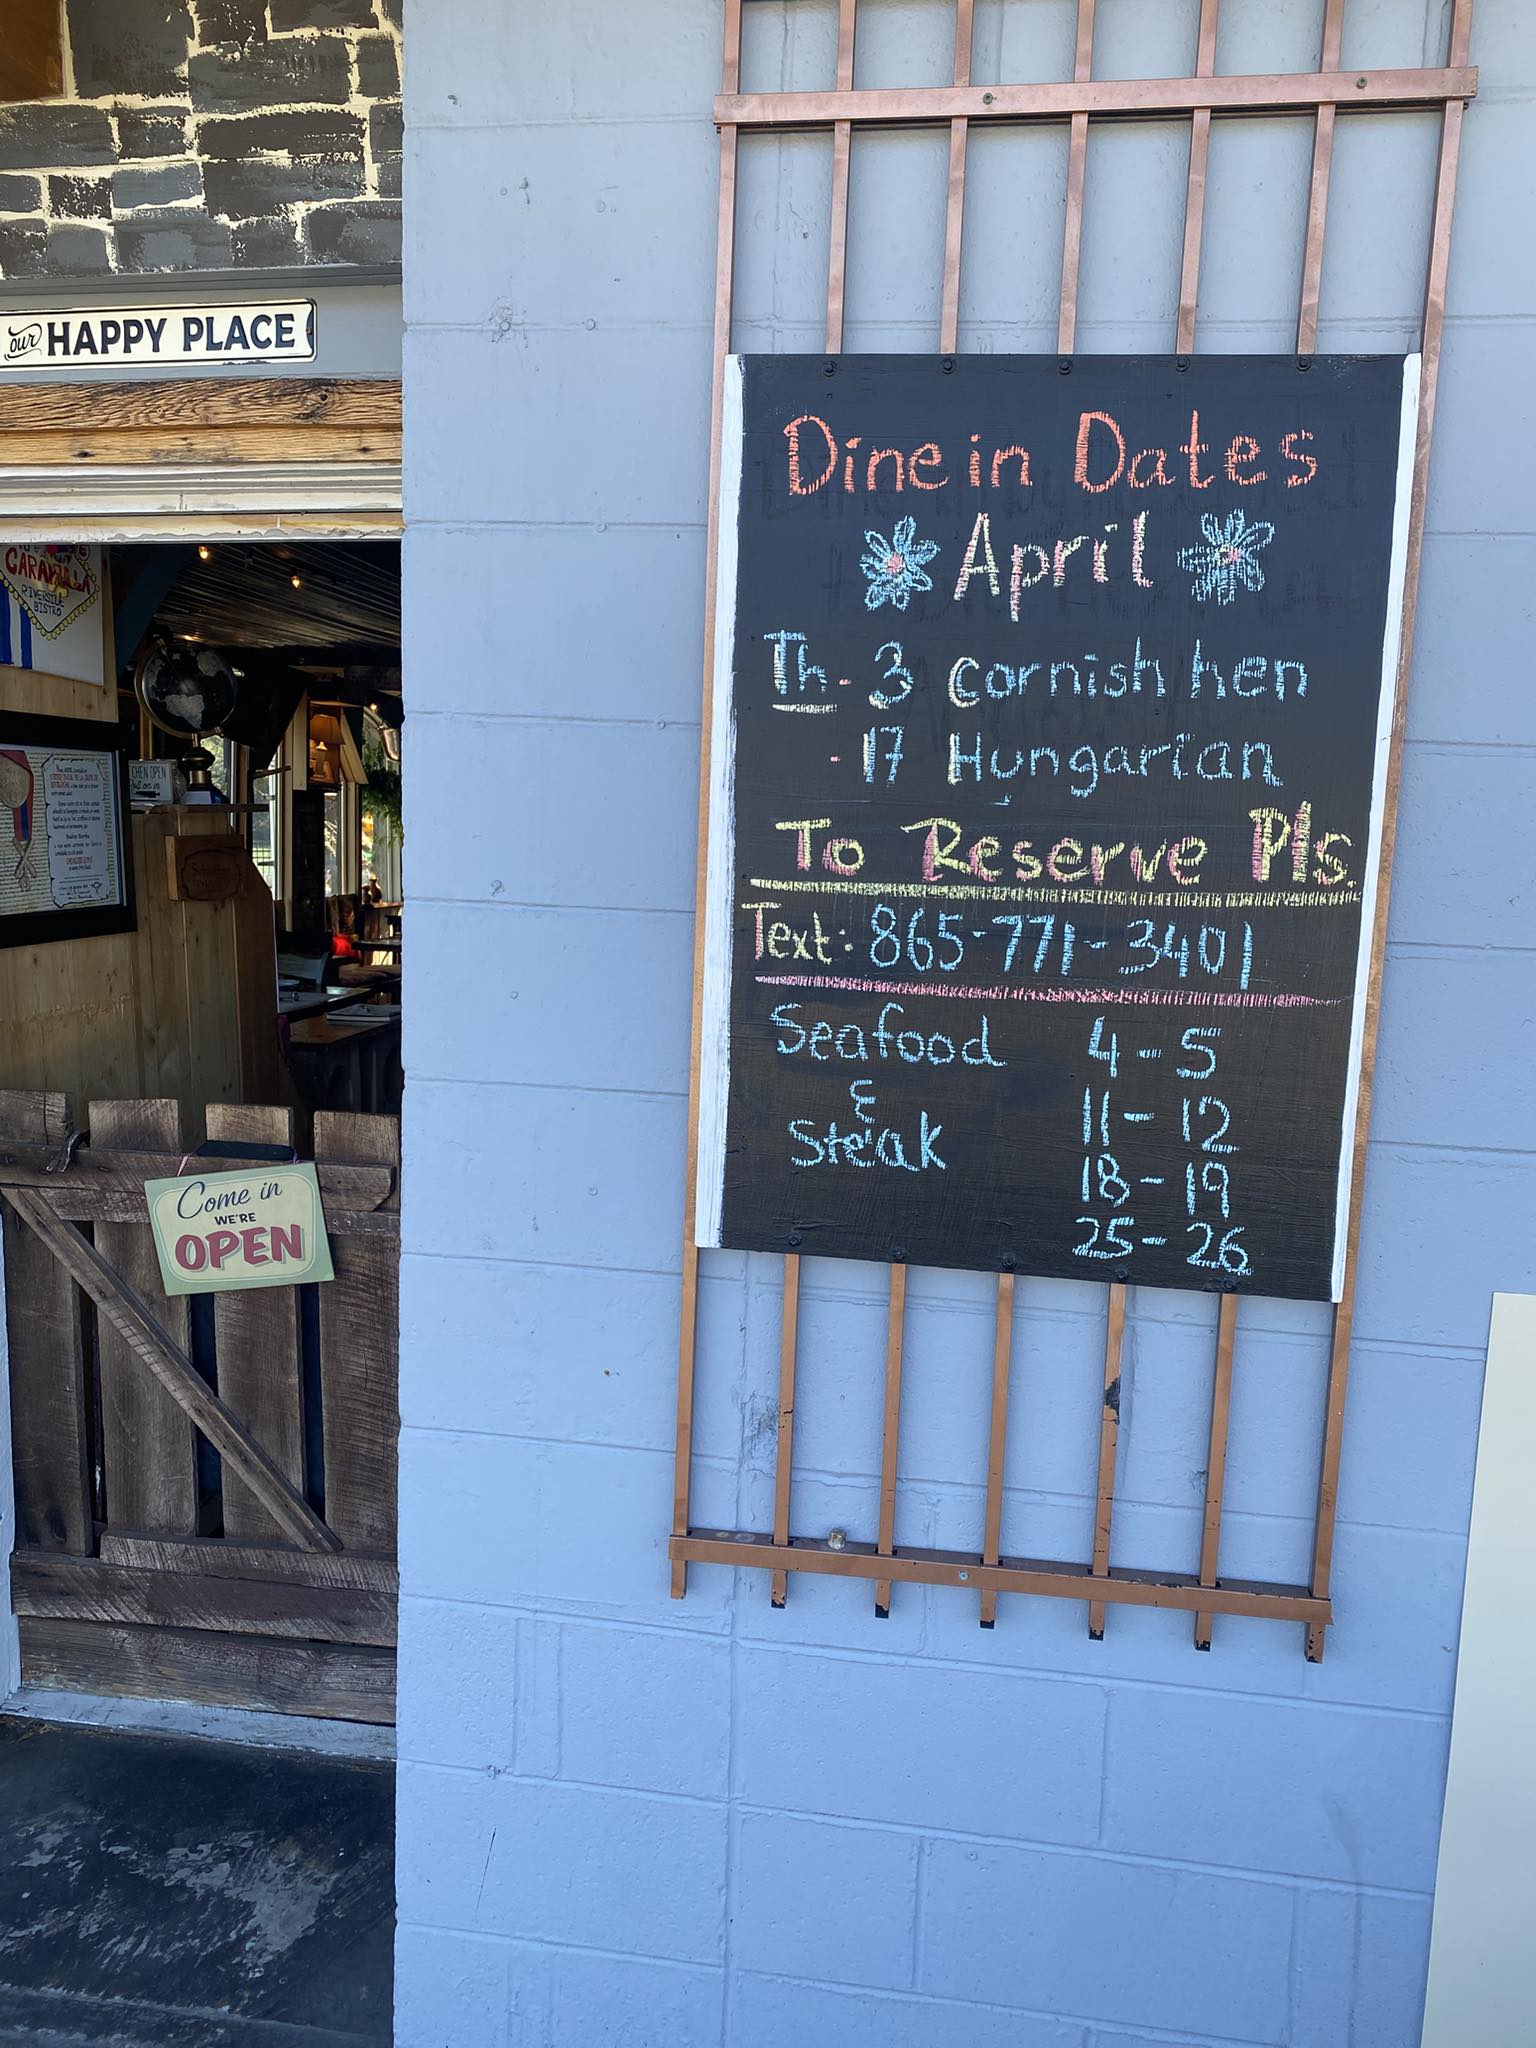 our HAPPY PLACE
CARAVILLA
RIVERSIDE
BISTRO
OPEN
Come in
WE'RE
OPEN
Dine in Dates
April
Th. 3 Cornish hen
. 17 Hungarian
To Reserve Pls.
Text: 865-771-3401
Seafood 4-5
& 11-12
Steak 18-19
25-26